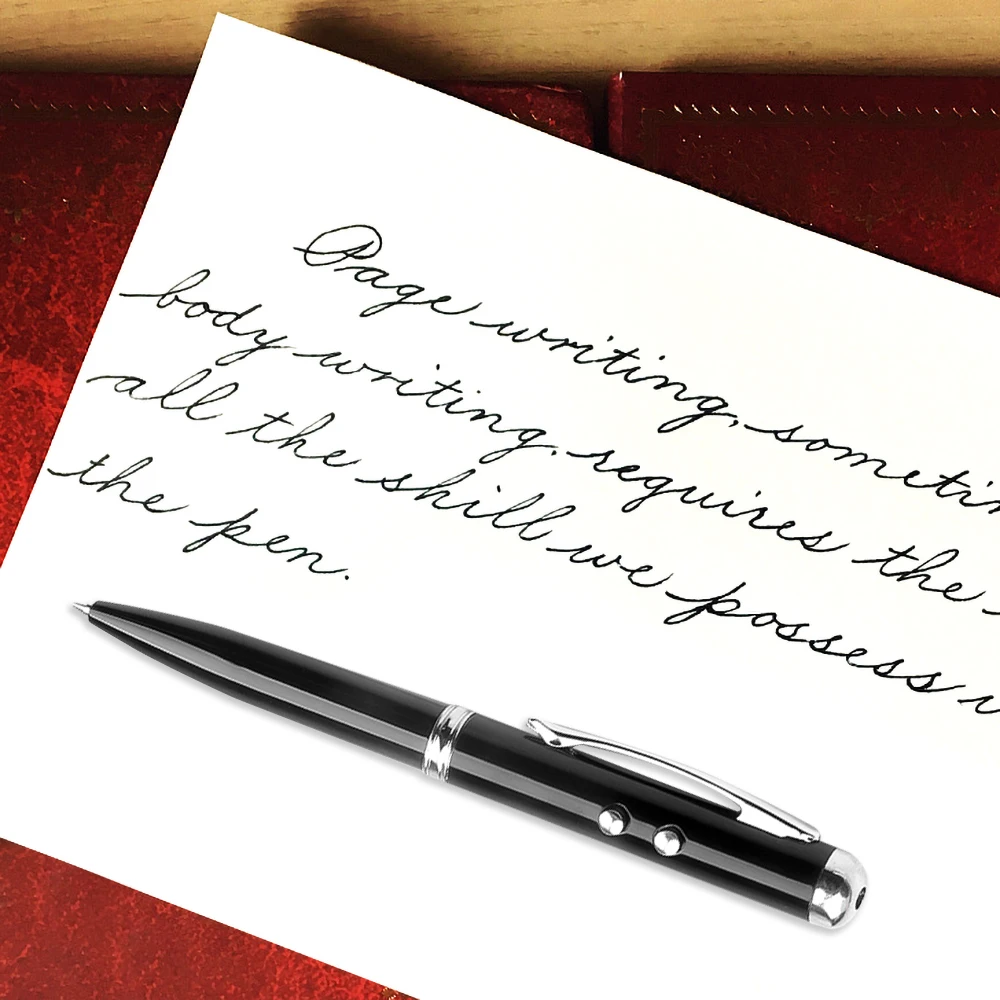 Page writing, someti
body writing, requires the
all the skill we possess
the pen.